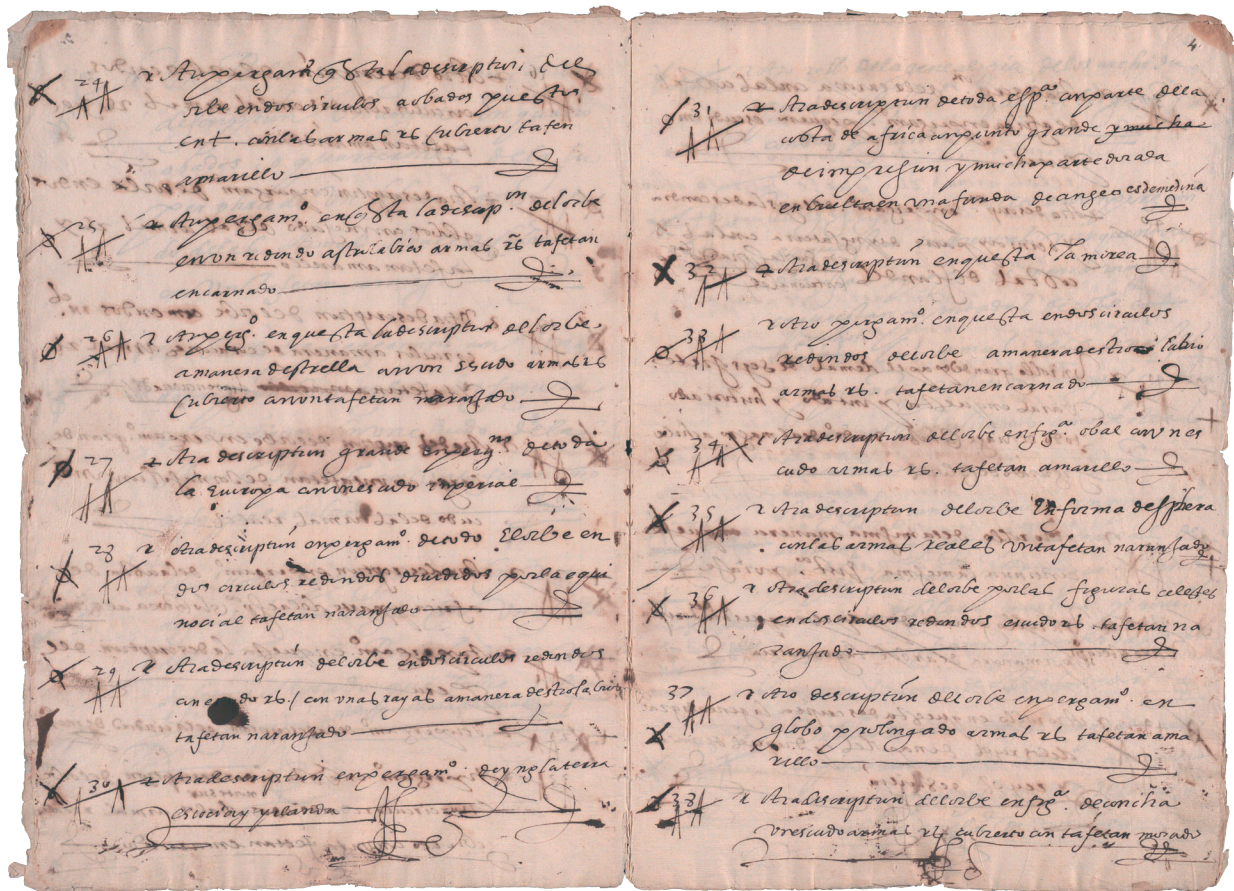 24 otro pergam.º q̃ sta la descriptiõ del
orbe en dos circulos aobados puestos
en + . con las armas rs cubierto tafetan
amarillo
25 otro pergam.º en q̃ sta la descrip.on del orbe
en vn redondo astrolabio armas rs tafetan
encarnado
26 otro perg.º en que sta la descriptiõ del orbe
a manera destrella con vn escudo armas rs
cubierto con vn tafetan naranjado
27 otra descriptiõn grande en perg.no de toda
la Europa con vn escudo imperial
28 otra descriptiõn en pergam.º de todo El orbe en
dos circulos redondos diuididos por la equi
nocial tafetan naranjado
29 otra descriptiõn del orbe en dos circulos redondos
con do rs / con vnas rayas a manera destrolabio
tafetan naranjado
30 otra descriptiõn en pergam.º de ynglaterra
escocia y yrlanda
4
31 otra descriptiõn de toda esp.a con parte de la
costa de africa con punto grande y mucha
de impresiõn y mucha parte dorada
enbuelta en vna funda de angeo es de medina
32 otra descriptiõn en que sta la morea
33 otro pergam.º en que sta en dos circulos
redondos del orbe a manera de
armas rs. tafetan encarnado
34 otra descriptiõn del orbe en fig.a obal con vn es
cudo armas rs. tafetan amarillo
35 otra descriptiõn del orbe En forma de sphera
con las armas reales vn tafetan naranjado
36 otra descriptiõn del orbe por las figuras celestes
en dos circulos redondos escudo rs. tafetan na
ranjado
37 otro descriptiõn del orbe en pergam.º en
globo prolongado armas rs tafetan ama
rillo
38 otra descriptiõn del orbe en fig.a de concha
vn escudo armas rs cubierto con tafetan morado